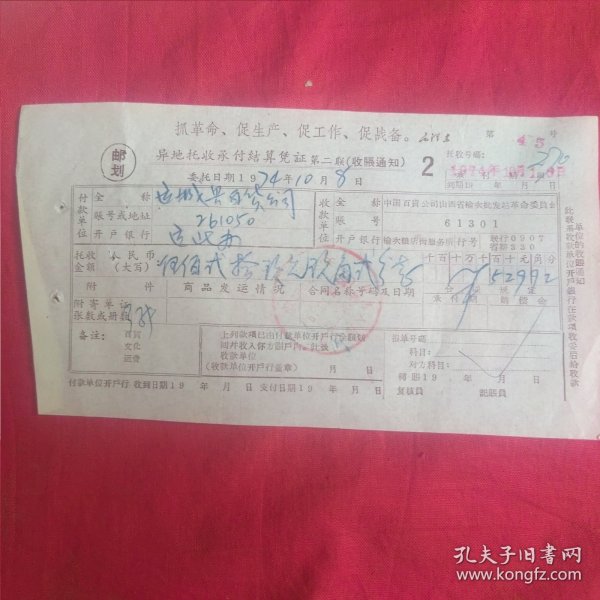 抓革命、促生产、促工作、促战备。
第 43 号
邮划
异地托收承付结算凭证 第二联(收账通知) 2 托收号码:
委托日期1974年10月8日
到期19 年 月 日
付款单位
全称
百货公司
账号或地址 261050
开户银行
收款单位
全称 中国百货公司山西省榆次批发站革命委员会
账号 61301
开户银行 榆次镇店街服务所 行号 联行0907 省辖330
托收金额 人民币(大写) 伍佰贰拾玖元玖角贰分
千百十万千百十元角分
52992
附件 商品发运情况 合同名称号码及日期
附寄单证张数或册数
备注: 百货 文化 运费
上列款项已由付款单位开户行全额划回并收入你方账户内。此致
收款单位
(收款单位开户行盖章) 月 日
科目:
对方科目:
转账19 年 月 日
付款单位开户行 收到日期19 年 月 日 支付日期19 年 月 日 复核员 记账员
此联是收款单位开户银行在款项收妥后给收款单位的收账通知
孔夫子旧书网
www.kongfz.com